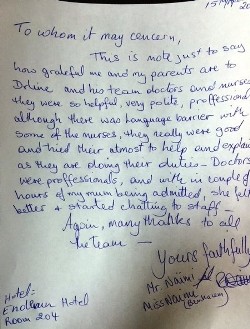 To whom it may concern,
This is note just to say
how grateful me and my parents are to
and his team doctors and nurses
they were so helpful, very polite, proffessional
although there was language barrier with
some of the nurses, they really were good
and tried their atmost to help and explain
as they are doing their duties - Doctors
were proffessionals, and with in couple of
hours of my mum being admitted, she felt
better & started chatting to staff
Again, many thanks to all
the team -
Yours faithfully
Mr. Naimi
Miss Naimi
Hotel:
Hotel
Room 204